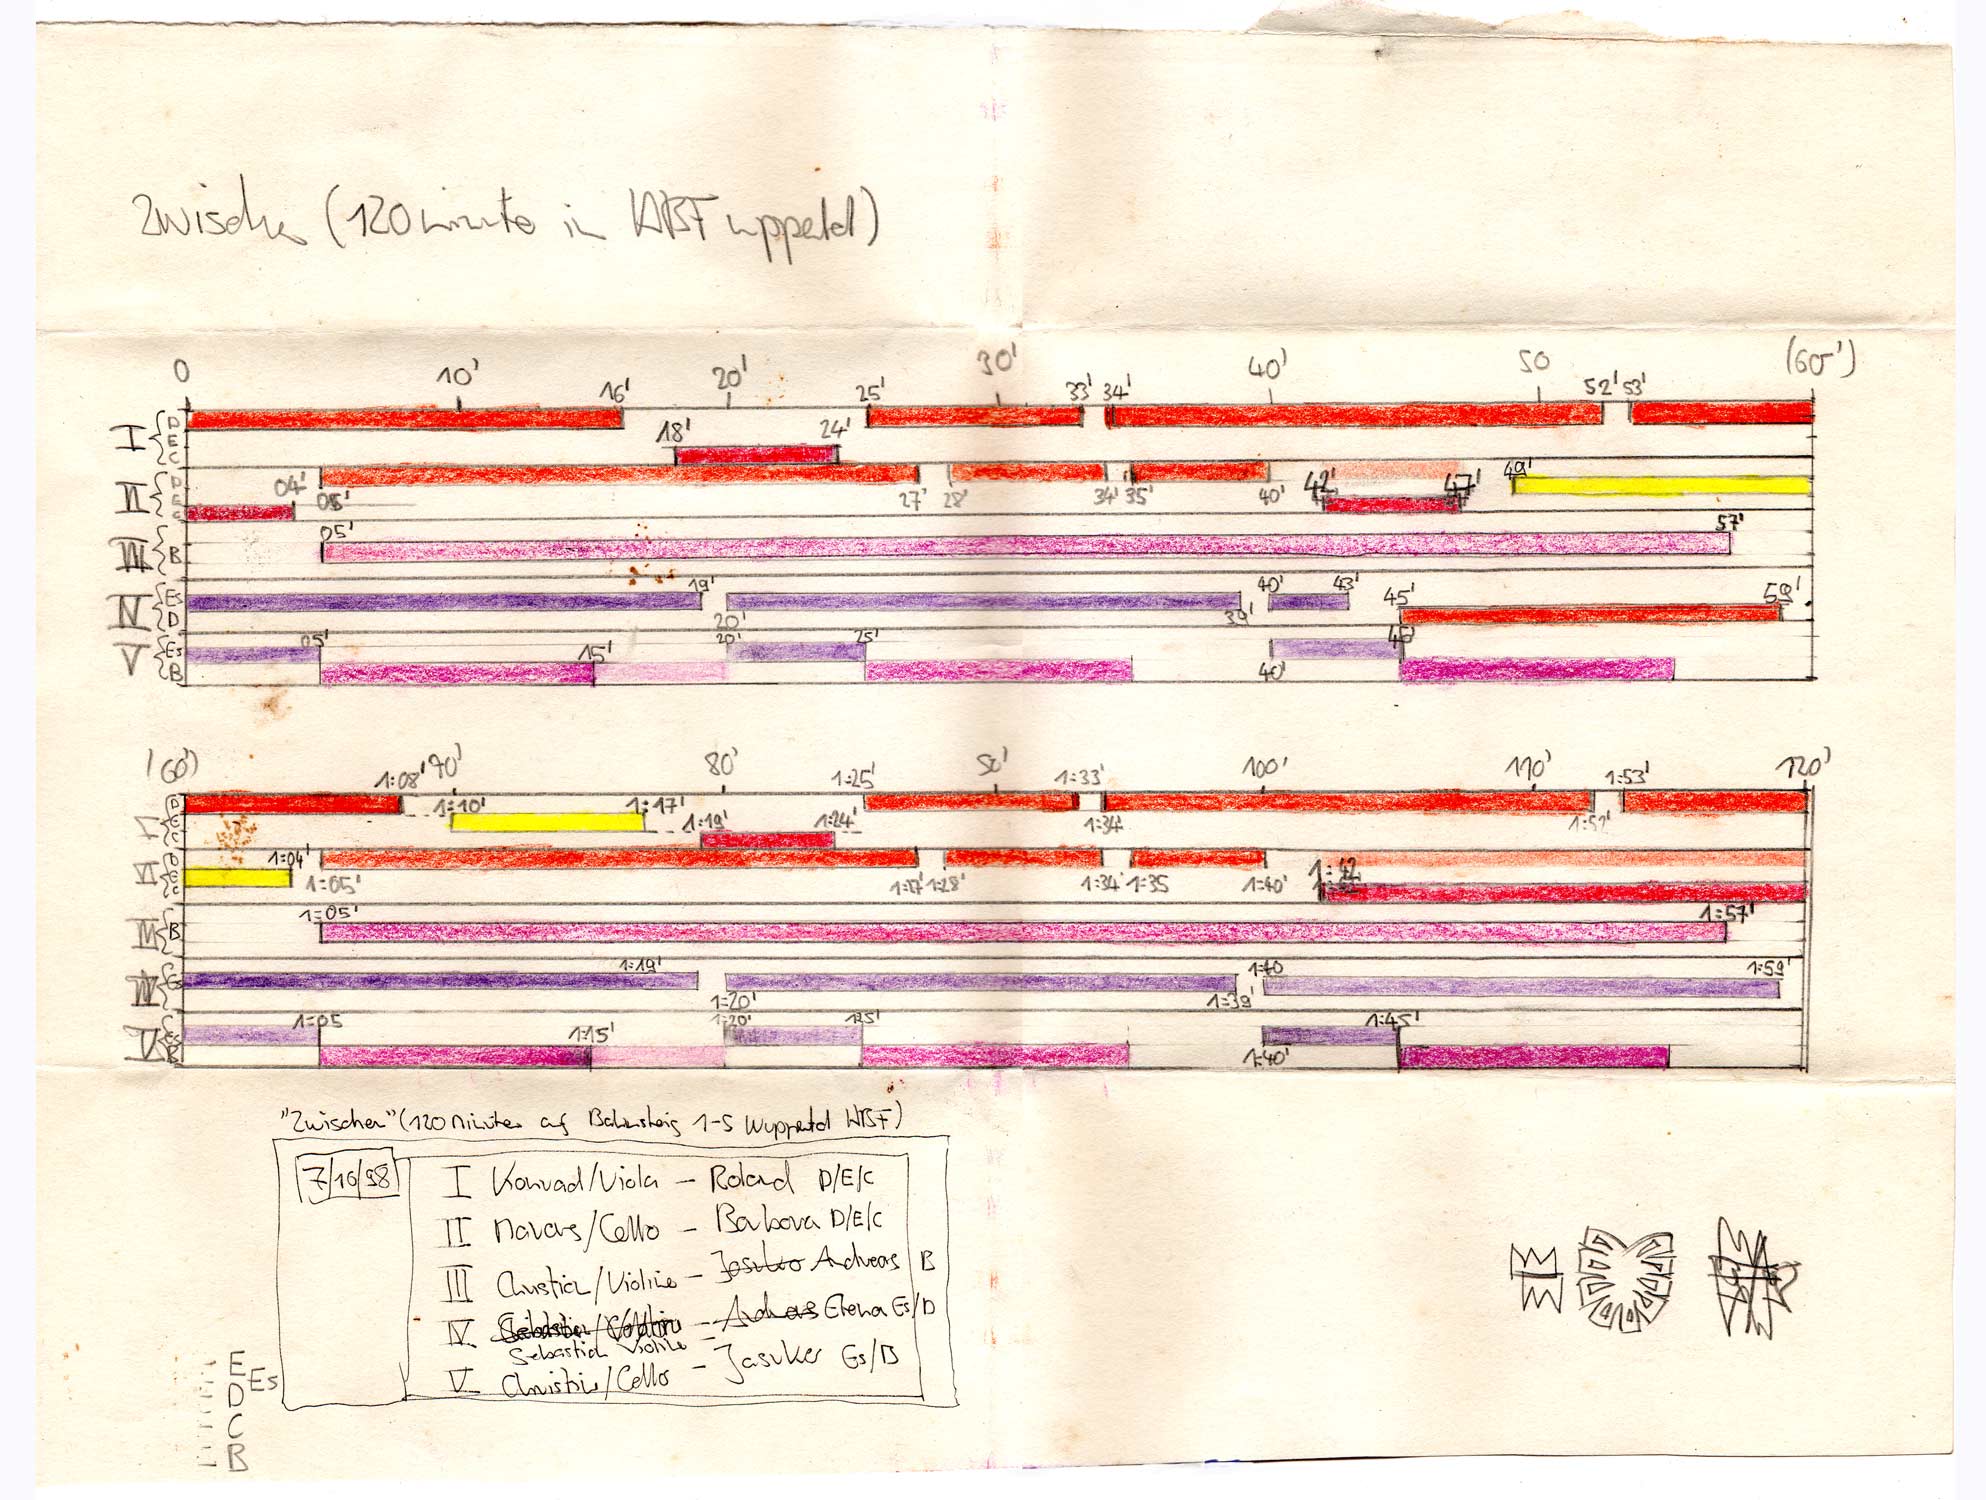 Zwischen (120 Minuten in HBF Wuppertal)
0 10' 16' 20' 25' 30' 33' 34' 40' 50 52' 53' (60')
I D E C 18' 24'
II D E C 04' 05' 27' 28' 34' 35' 40' 42' 47' 49'
III B 05' 57'
IV Es D 19' 20' 39' 40' 43' 45' 59'
V Es B 05' 15' 20' 25' 40' 45'
(60') 1:08' 70' 80' 1:25' 90' 1:33' 100' 110' 1:53' 120'
I D E C 1:10' 1:17' 1:19' 1:24' 1:34' 1:52'
II D E C 1:04' 1:05' 1:28' 1:34' 1:35 1:40' 1:42
III B 1:05' 1:57'
IV Es 1:19' 1:20' 1:39' 1:40 1:59'
V Es B 1:05 1:15' 1:20' 1:40' 1:45'
"Zwischen" (120 Minuten auf Bahnsteig 1-5 Wuppertal HBF)
7/16/98
I Konrad/Viola – Roland D/E/C
II Marcus/Cello – Barbara D/E/C
III Christian/Violine – Andreas B
IV Sebastian/Violine – Andreas Elena Es/D
Sebastian Violine
V Christine/Cello – Jasuker Es/B
E
Es
D
C
B